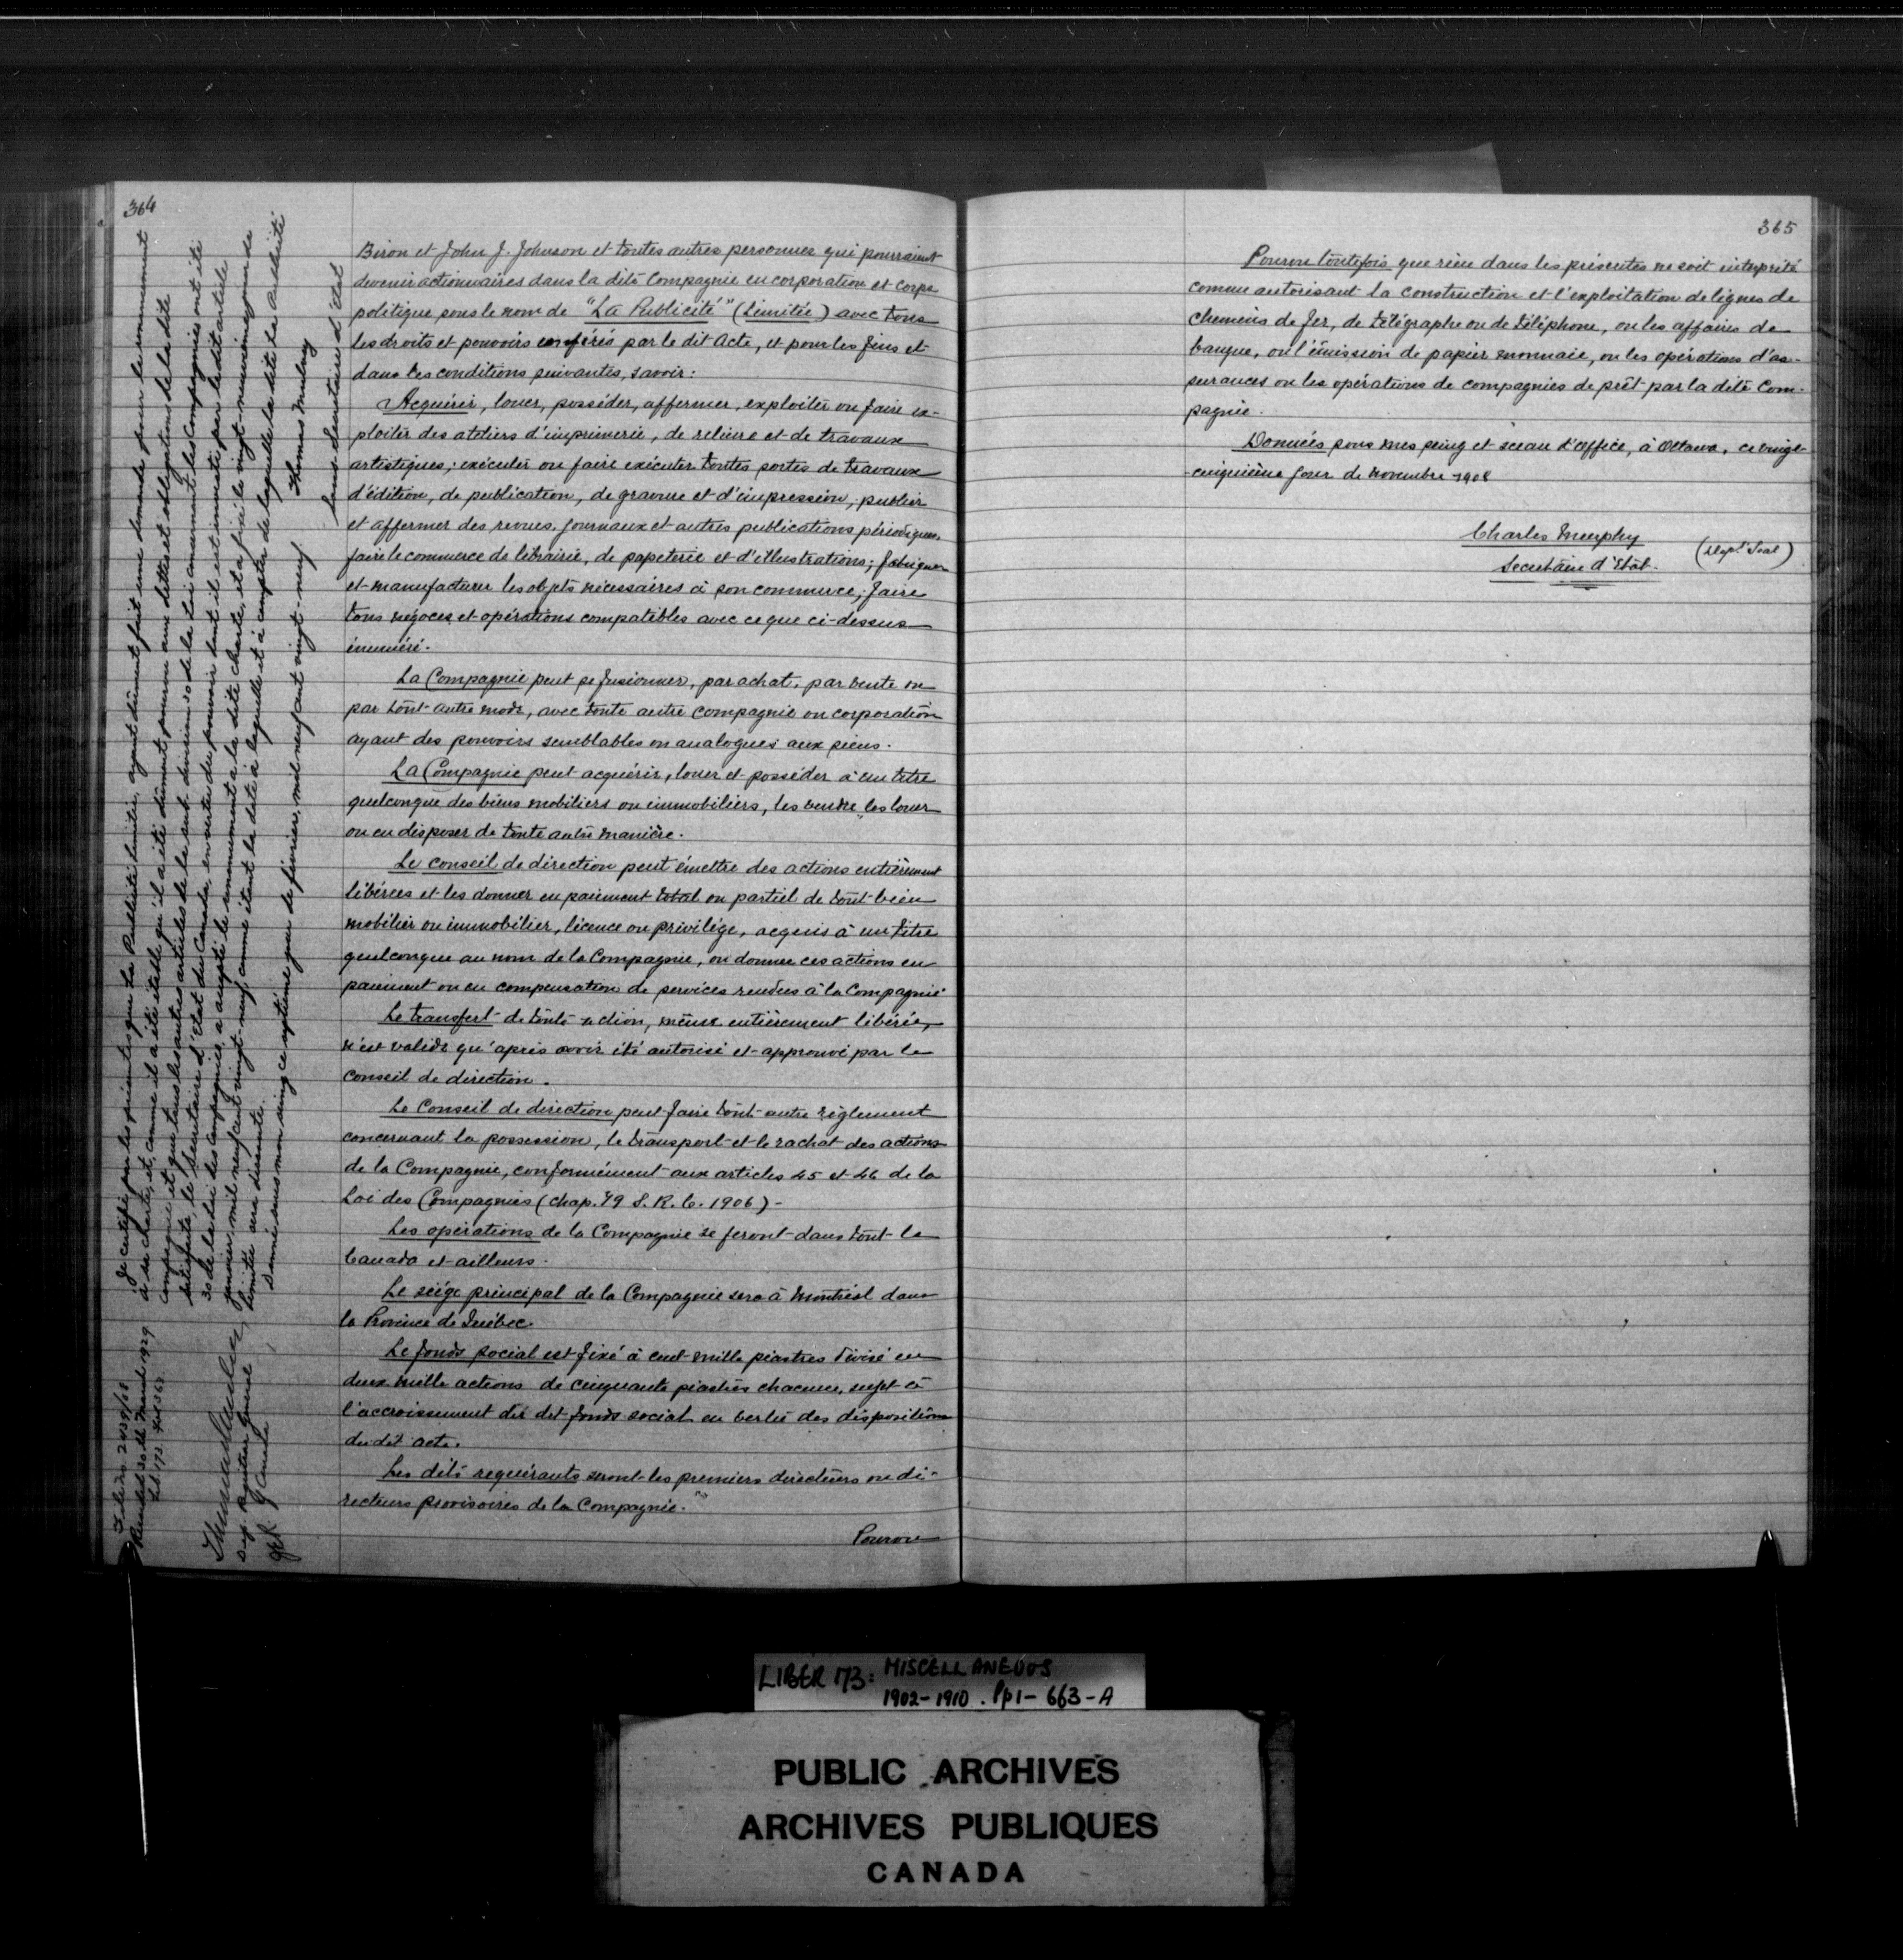 364
Biron et John J. Johnson et toutes autres personnes qui pourraient
devenir actionnaires dans la dite Compagnie en corporation et corps
politique sous le nom de "La Publicité" (Limitée) avec tous
les droits et pouvoirs conférés par le dit Acte, et pour les fins et
dans les conditions suivantes, savoir:
Acquérir, louer, posséder, affermer, exploiter ou faire ex-
ploiter des ateliers d'imprimerie, de reliure et de travaux
artistiques; exécuter ou faire exécuter toutes sortes de travaux
d'édition, de publication, de gravure et d'impression; publier
et affermer des revues, journaux et autres publications périodiques,
faire le commerce de librairie, de papeterie et d'illustrations; fabriquer
et manufacturer les objets nécessaires à son commerce; faire
tous négoces et opérations compatibles avec ce que ci-dessus
énuméré.
La Compagnie peut se fusionner, par achat, par vente ou
par tout autre mode, avec toute autre compagnie ou corporation
ayant des pouvoirs semblables ou analogues aux siens.
La Compagnie peut acquérir, louer et posséder à un titre
quelconque des biens mobiliers ou immobiliers, les vendre, les louer
ou en disposer de toute autre manière.
Le conseil de direction peut émettre des actions entièrement
libérées et les donner en paiement total ou partiel de tout bien
mobilier ou immobilier, licence ou privilège, acquis à un titre
quelconque au nom de la Compagnie, ou donner ces actions en
paiement ou en compensation de services rendus à la Compagnie
Le transfert de toute action, même entièrement libérée,
n'est valide qu'après avoir été autorisé et approuvé par le
conseil de direction.
Le Conseil de direction peut faire tout autre règlement
concernant la possession, le transport et le rachat des actions
de la Compagnie, conformément aux articles 45 et 46 de la
Loi des Compagnies (chap. 79 S. R. C. 1906) -
Les opérations de la Compagnie se feront dans tout le
Canada et ailleurs.
Le siége principal de la Compagnie sera à Montréal dans
la Province de Québec.
Le fonds social est fixé à cent mille piastres divisé en
deux mille actions de cinquante piastres chacune, sujet à
l'accroissement du dit fonds social en vertu des dispositions
du dit acte.
Les dits requérants seront les premiers directeurs ou di-
recteurs provisoires de la Compagnie."
Pourvu
Je certifie par les présentes que La Publicité limitée, ayant dûment fait une demande pour le
à sa charte, et, comme il a été établi qu'il a été dûment pourvu aux dettes et obligations de la dite
compagnie et que tous les autres articles de la sub-division 30 de la Loi concernant les Compagnies ont été
satisfaits, le Secrétaire d'Etat du Canada, en vertu du pouvoir dont il est investi par le dit article
30 de la Loi des Compagnies, a accepté le de la dite charte, et a fixé le vingt-neuvième jour de
janvier, mil neuf cent vingt-neuf, comme étant la date à laquelle et à compter de laquelle la dite La Publicité
limitée sera dissoute.
Donné sous mon seing ce septième jour de février, mil neuf cent vingt-neuf.
Thomas Mulvey
Sous-Secrétaire d'Etat
Recorded 30th March 1929
Lib. 173
Registrar General
of Canada
365
Pourvu toutefois que rien dans les présentes ne soit interprété
comme autorisant la construction et l'exploitation de lignes de
chemins de fer, de télégraphe ou de téléphone, ou les affaires de
banque, ou l'émission de papier monnaie, ou les opérations d'as-
surances ou les opérations de compagnies de prêt par la dite Com-
pagnie.
Données sous mes seing et sceau d'office, à Ottawa, ce vingt-
-cinquième jour de novembre 1908
Charles Murphy
(Dept. Seal)
Secrétaire d'Etat.
LIBER 173: MISCELLANEOUS
1902-1910. Pp1-663-A
PUBLIC ARCHIVES
ARCHIVES PUBLIQUES
CANADA